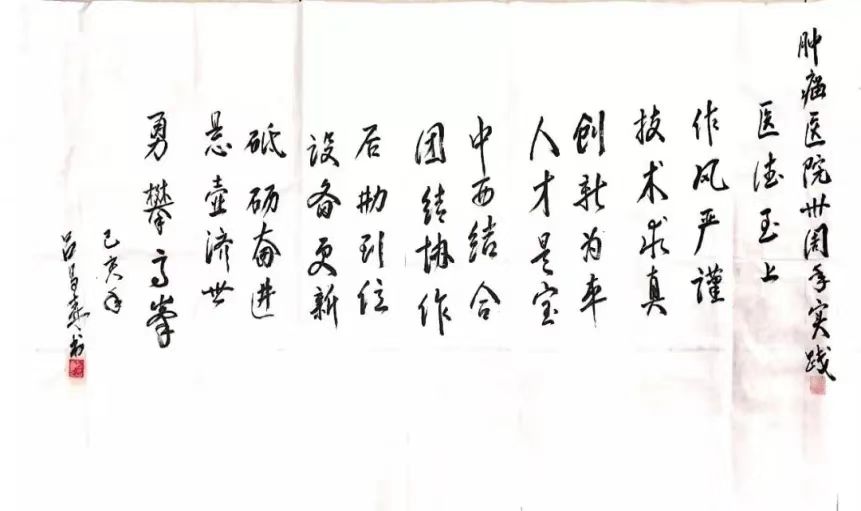 肿瘤医院卅周年实践
医德至上
作风严谨
技术求真
创新为本
人才是宝
中西结合
团结协作
后勤到位
设备更新
砥砺奋进
悬壶济世
勇攀高峯
己亥年
吕昌森书